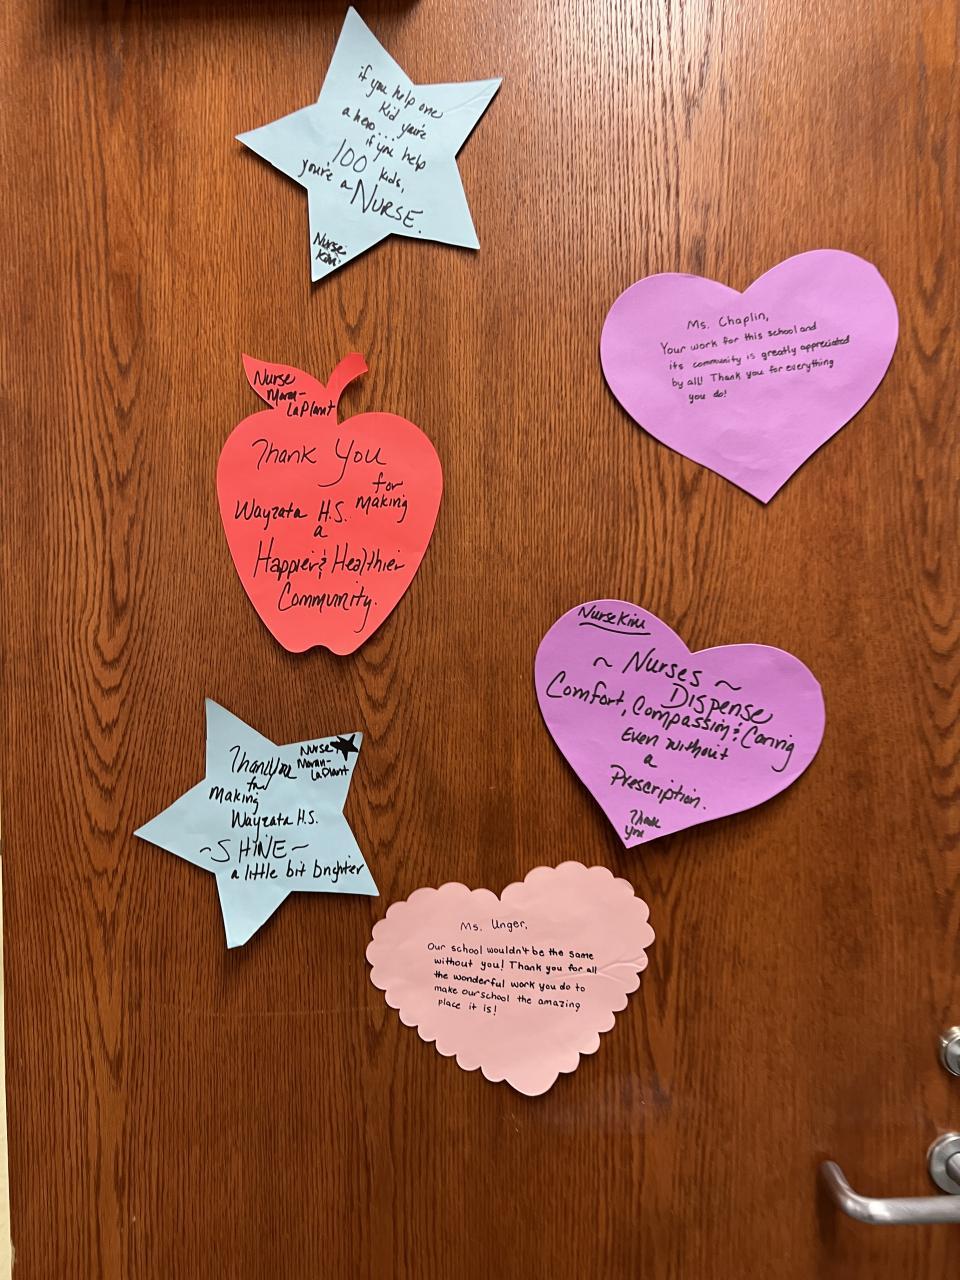 if you help one
kid you're
a hero...
if you help
100 kids,
you're a NURSE.
Nurse
Kim
Ms. Chaplin,
Your work for this school and
its community is greatly appreciated
by all! Thank you for everything
you do!
Nurse
Moran-
LaPlant
Thank You
for
Making
Wayzata H.S.
a
Happier & Healthier
Community.
Nurse Kim
~ Nurses ~
Dispense
Comfort, Compassion & Caring
Even without
a
Prescription.
Thank
you
Nurse
Moran-
LaPlant
Thank you
for
Making
Wayzata H.S.
~SHINE~
a little bit brighter
Ms. Unger,
Our school wouldn't be the same
without you! Thank you for all
the wonderful work you do to
make our school the amazing
place it is!